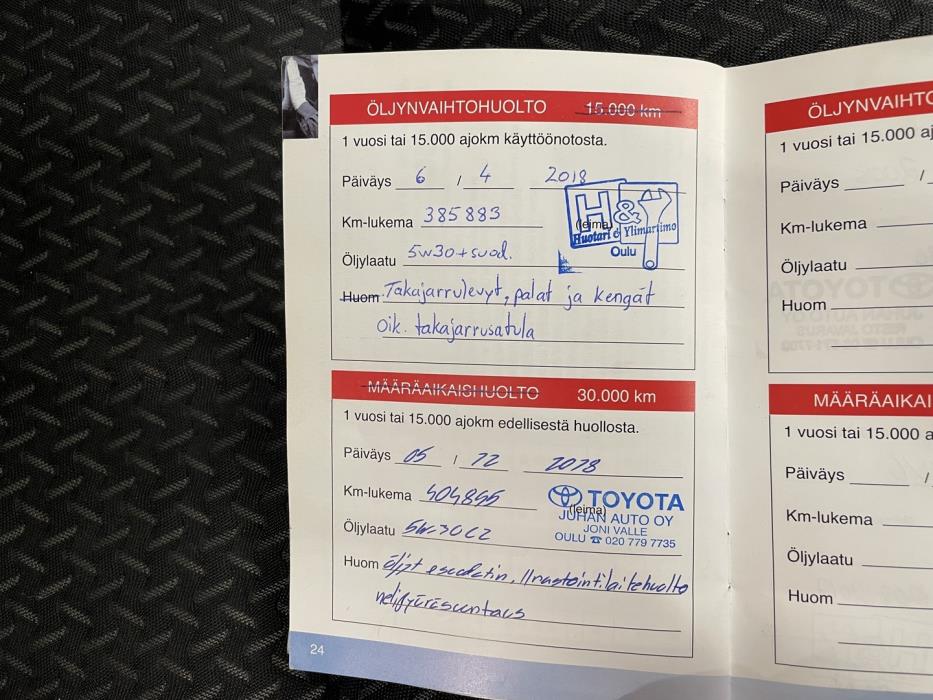 ÖLJYNVAIHTOHUOLTO 15.000 km
1 vuosi tai 15.000 ajokm käyttöönotosta.
Päiväys 6 / 4 2018
Km-lukema 385883
H &
(leima)
Huotari & Ylimartimo
Oulu
Öljylaatu 5w30+suod.
Huom Takajarrulevyt, palat ja kengät
Oik. takajarrusatula
MÄÄRÄAIKAISHUOLTO 30.000 km
1 vuosi tai 15.000 ajokm edellisestä huollosta.
Päiväys 05 / 12 2018
Km-lukema 404845
TOYOTA
(leima)
JUHAN AUTO OY
JONI VALLE
OULU ☎ 020 779 7735
Öljylaatu 5W30C2
Huom öljyt Ilmastointilaitehuolto
nelipyöräsuntaus
24
ÖLJYNVAIHTO
1 vuosi tai 15.000 aj
Päiväys /
Km-lukema
Öljylaatu
Huom
MÄÄRÄAIKAI
1 vuosi tai 15.000 a
Päiväys /
Km-lukema
Öljylaatu
Huom